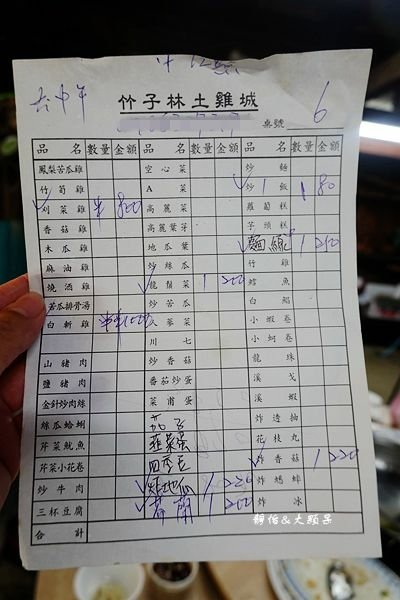 六中午
竹子林土雞城
桌號 6
品名 數量 金額 品名 數量 金額 品名 數量 金額
鳳梨苦瓜雞 空心菜 炒麵
竹筍雞 A菜 炒飯 1 80
刈菜雞 半 800 高麗菜 蘿蔔糕
香菇雞 高麗菜芽 芋頭糕
木瓜雞 地瓜葉 麵線
麻油雞 炒絲瓜 竹雞
燒酒雞 龍鬚菜 1 200 鱔魚
苦瓜排骨湯 炒苦瓜 白鯧
白斬雞 人蔘菜 小蝦卷
川七 小蚵卷
山豬肉 炒香菇 龍珠
鹽豬肉 番茄炒蛋 溪戈
金針炒肉絲 菜甫蛋 溪蝦
絲瓜蛤蜊 茄子 炸透抽
芹菜魷魚 韮菜蛋 花枝丸
芹菜小花卷 四季豆 炸香菇 1 220
炒牛肉 炸地瓜 1 220 炸螃蟀
三杯豆腐 1 200 炸冰
合計
靜怡&大顆呆